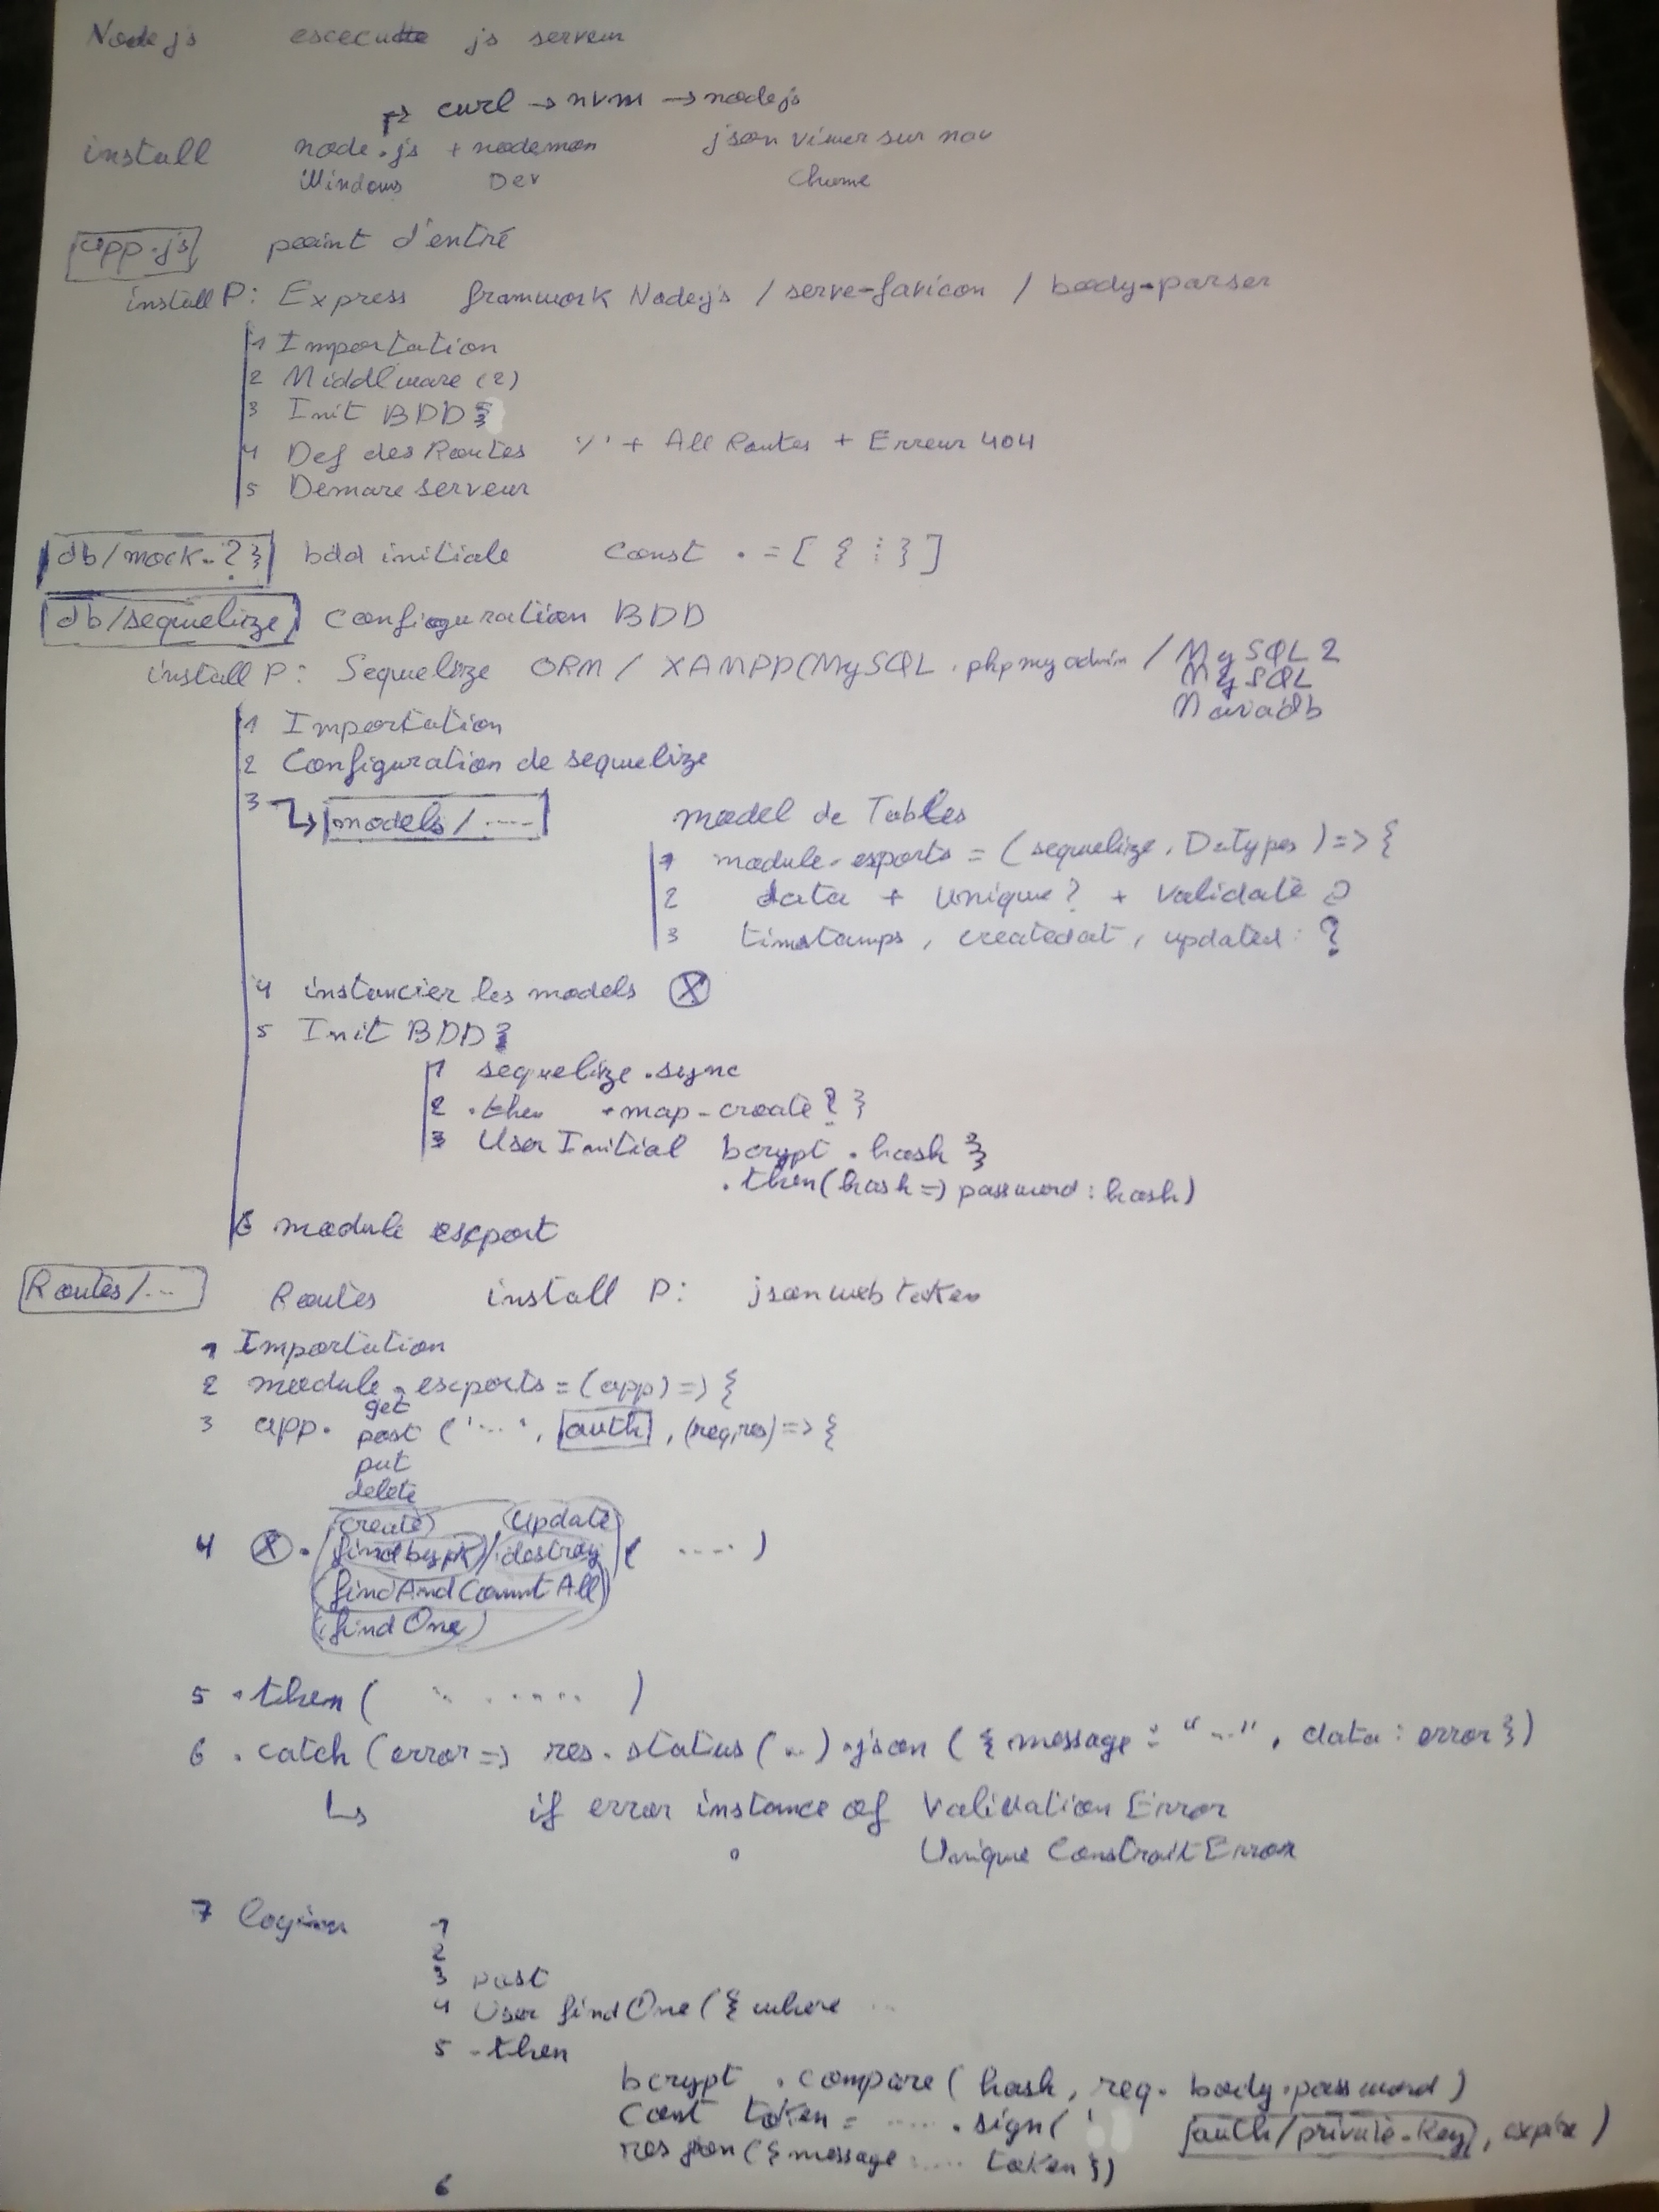 Node js escecute js serveur
↱ curl → nvm → nodejs
install node.js + nodemon json viwer sur nav
Windows Dev Chrome
app.js point d'entré
install P: Express framwork Nodejs / serve-favicon / body-parser
1 Importation
2 Middlware (2)
3 Init BDD
4 Def des Routes '/' + All Routes + Erreur 404
5 Demare serveur
db/mock-?} bdd initiale const . = [ { ⋮ } ]
db/sequelize configuration BDD
install P: Sequelize ORM / XAMPP(MySQL.phpmyadmin / MySQL 2
MySQL
Mariadb
1 Importation
2 Configuration de sequelize
3 ↳ models/.... model de Tables
1 module.esports = (sequelize, DaTypes) => {
2 data + unique? + validate ?
3 timstamps, createdat, updated: ?
4 instancier les models Ⓧ
5 Init BDD
1 sequelize.sync
2 .then .map-create ? }
3 User Initial bcrypt.hash }
.then(hash => password: hash)
6 module escport
Routes/... Routes install P: jsonwebtoken
1 Importation
2 module.escports = (app) => {
get
3 app. post ('...', auth, (req,res) => {
put
delete
create update
4 Ⓧ. findbypk / destroy ( .... )
findAndCountAll
findOne
5 .then ( ...... )
6 .catch (error => res.status(..).json ({ message : "...", data : error })
↳ if error instance of Validation Error
Unique ConstraitError
7 login 1
2
3 post
4 User findOne({ where ...
5 .then
bcrypt.compare( hash, req.body.password)
const token = ..... .sign( ' auth/private-key, expire )
res json({ message .... token })
6